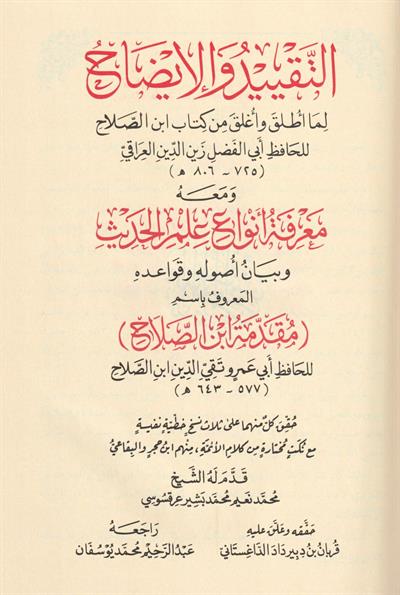 التَّقْيِيدُ وَالإِيضَاحُ
لِمَا أُطْلِقَ وَأُغْلِقَ مِن كِتَابِ ابْنِ الصَّلَاحِ
لِلحَافِظِ أَبِي الفَضْلِ زَيْنِ الدِّينِ العِرَاقِيّ
(٧٢٥ - ٨٠٦ ه)
وَمَعَهُ
مَعْرِفَةُ أَنْوَاعِ عِلْمِ الحَدِيثِ
وَبَيَانُ أُصُولِهِ وَقَوَاعِدِهِ
المَعْرُوفُ بِاسْمِ
(مُقَدِّمَةُ ابْنِ الصَّلَاحِ)
لِلحَافِظِ أَبِي عَمْرٍو تَقِيِّ الدِّينِ ابْنِ الصَّلَاحِ
(٥٧٧ - ٦٤٣ ه)
حُقِّقَ كُلٌّ مِنهُمَا عَلَى ثَلَاثِ نُسَخٍ خَطِّيَّةٍ نَفِيسَةٍ
مَعَ نُكَتٍ مُخْتَارَةٍ مِن كَلَامِ الأَئِمَّةِ، مِنْهُم ابن حجر وَالبِقَاعِيُّ
قَدَّمَ لَهُ الشَّيْخُ
مُحَمَّد نَعِيم مُحَمَّد بَشِير عِرقسُوسِي
حَقَّقَهُ وَعَلَّقَ عَلَيهِ
قُربَان بُن دِبِير دَاد الدَّاغِستَانِي
رَاجَعَهُ
عَبْدُ الرَّحِيْم مُحَمَّد يُوسُفَان